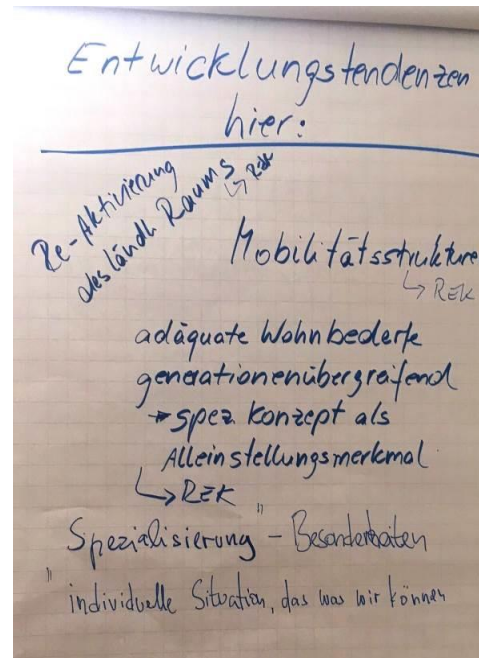 Entwicklungstendenzen
hier:
Re-Aktivierung
des ländl Raums
↳ REK
Mobilitätsstrukture
↳ REK
adäquate Wohnbederfe
generationenübergreifend
→ spez konzept als
Alleinstellungsmerkmal
↳ REK
"Spezialisierung" - Besonderheiten
individuelle Situation, das was wir können